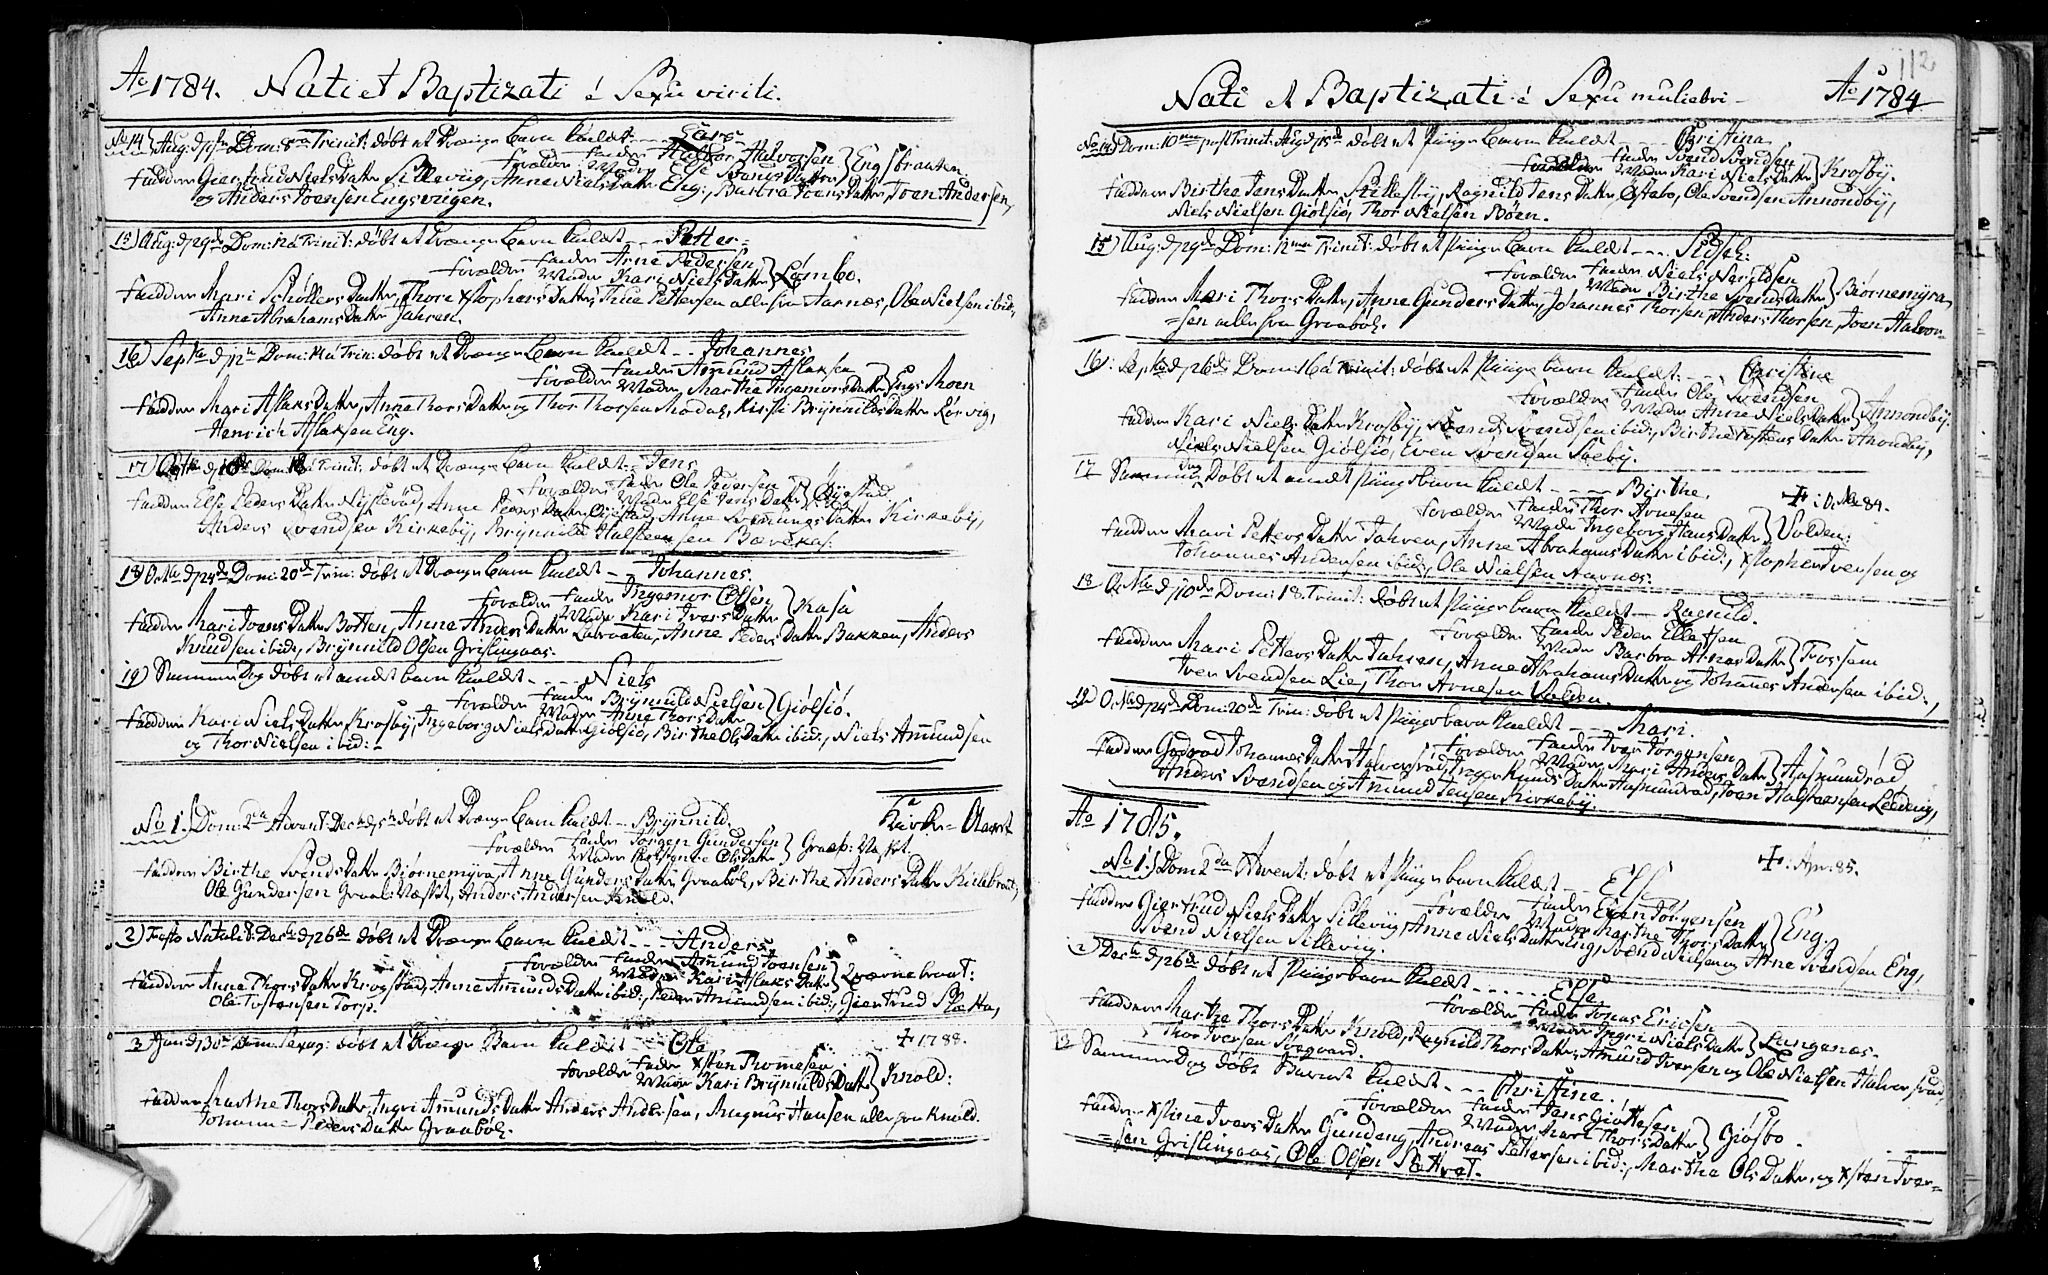 Ao 1784. Nati et Baptizati é Sexu virili.
No 14 Aug: d. 1ste Dom: 8va Trinit: døbt et Drænge barn kaldet - - Lars
Forældre Fader Halvor Halvorsen
Moder Else SvendsDatter } Engsbraaten.
Faddere Giertrud NielsDatter Sillevig, Anne NielsDatter Eng:, Barbra IversDatter, Iver Andersen,
og Anders Joensen Engsvigen.
15) Aug: d. 29de Dom: 12 á Trinit: døbt et Drænge barn kaldet - - - Petter -
Forældre Fader Arne Pedersen
Moder Kari NielsDatter } Lømbo.
Faddere Mari SchøttersDatter, Thore XstophersDatter, Thue Pettersen alle fra Aarnæs, Ole Nielsen ibid:,
Anne AbrahamsDatter Jahren.
16) Septbr d. 12te Dom: 14 á Trin: døbt et Drænge barn kaldet - - Johannes
Forældre Fader Amund Aslaksen
Moder Marthe IngemorsDatter } Engs Moen
Faddere Mari AslaksDatter, Anne ThorsDatter og Thor Thorsen Modas, Kirsti BrynnildsDatter Rørvig,
Henrich Aslaksen Eng.
17) Octbr d. 10de Dom: 18 á Trinit: døbt et Drænge barn kaldet - Jens
Forældre Fader Ole Pedersen
Moder Else JensDatter } Øyestad
Faddere Else PedersDatter Nysterød, Anne PedersDatter Øyestad, Anne SvenningsDatter Kirkebÿ,
Anders Svendsen Kirkebÿ, Brynnild Halsteensen Bævekas.
18) Octbr d. 24de Dom: 20de Trin: døbt et Drænge barn kaldet - Johannes.
Forældre Fader Ingemor Olsen
Moder Kari IversDatter } Kasa
Faddere Mari IversDatter Botten, Anne AndersDatter Labraaten, Anne PedersDatter Bakken, Anders
Knudsen ibid:, Brynnild Olsen Grislingaas.
19) Samme Dag døbt et andet barn kaldet - - - - Niels
Forældre Fader Brynnild Nielsen
Moder Anne ThorsDatter } Giølsiø.
Faddere Kari NielsDatter Krosbÿ, Ingeborg NielsDatter Giølsiø, Birthe OlsDatter ibid:, Niels Amundsen
og Thor Nielsen ibid: -
Kirke-
No 1. Dom: 2da Advent: Decbr d. 5te døbt et Drænge barn kaldet - Brynnild.
Forældre Fader Jørgen Gundersen
Moder OlsDatter } Graab: Væstet.
Faddere Birthe SvendsDatter Biørnemyra, Anne GundersDatter Graaboh, Birthe AndersDatter Killebraat,
Ole Gundersen Graab: Væstet, Anders Andersen Knold.
2) Festo Natalit: Decbr d. 26de døbt et Drænge barn kaldet - - Anders
Forældre Fader Amund Joensen
Moder Kari AslaksDatter } Qværnebraat:
Faddere Anne ThorsDatter Krogstad, Anne AmundsDatter ibid:, Peder Amundsen ibid:, Giertrud Slætta,
Ole Tostensen Torp.
3 Jan: d. 30te Dom: Sexag: døbt et Drænge Barn kaldet - Ole ✝ 1788.
Forældre Fader Xsten Thomesen
Moder Kari BrynnildsDatter } Knold:
Faddere Marthe ThorsDatter, Ingri AmundsDatter Anders Andersen, Magnus Hansen alle fra Knold.
Johanne PedersDatter Graaboh.
112
Nati et Baptizati é Sexu muliebri - Ao 1784
No 14 Dom: 10ma post Trinit: Aug: d. 15de døbt et Pige barn kaldet - - - Christina
Forældre Fader Svend Svendsen
Moder Kari NielsDatter } Krosbÿ.
Faddere Birthe JensDatter Stillesbÿ, Ragnild JensDatter Østabø, Ole Svendsen Annondbÿ,
Niels Nielsen Giølsiø, Thor Nielsen Bøen.
15) Aug: d. 29de Dom: 12ma Trinit: døbt et Pige barn kaldet - - - - Sidsel:
Forældre Fader Niels Neridsen
Moder Birthe SvendsDatter } Biørnemÿra
Faddere Mari ThorsDatter, Anne GundersDatter, Johannes Thorsen, Anders Thorsen, Joen Halvor-
=sen alle fra Graaboh.
16): Septbr d. 26de Dom: 16 á Trinit: døbt et Pige barn kaldet: - - - Christine
Forældre Fader Ole Svendsen
Moder Anne NielsDatter } Annondbÿ.
Faddere Kari NielsDatter Krosbÿ, Svend Svendsen ibid:, Birthe TostensDatter Anondbÿ,
Niels Nielsen Giølsiø, Even Svendsen Saebÿ.
17 Samme dag Døbt et andet Pigebarn kaldet - - - - Birthe. ✝: Octbr 84.
Forældre Fader Thor Arnesen
Moder Ingeborg HansDatter } Volden:
Faddere Mari PettersDatter Jahren, Anne AbrahamsDatter ibid:, Xstopher Iversen og
Johannes Andersen ibid:, Ole Nielsen Aarnæs.
18 Octbr d. 10de Dom: 18. Trinit: døbt et Pige barn kaldet - Ragnild.
Forældre Fader Peder Ellefsen
Moder Barbra ArnesDatter } Fossem
Faddere Mari PettersDatter Jahren, Anne AbrahamsDatter og Johannes Andersen ibid:,
Iver Svendsen Lie, Thor Arnesen Volden.
19) Octbr d. 24de Dom: 20de Trin: døbt et Pige barn kaldet - - Mari.
Forældre Fader Iver Jørgensen
Moder Mari AndersDatter } Asmundrød
Faddere Gudrød JohannesDatter Halvorsrød, Inger KnudsDatter Asmundrød, Joen Halsteensen Leeding,
Anders Svendsen og Amund Jensen Kirkebÿ.
Ao 1785.
No 1. Dom 2da Advent: døbt et Pige barn kaldet - - Else ✝: Apr: 85.
Forældre Fader Even Jørgensen
Moder Marthe ThorsDatter } Eng.
Faddere Giertrud NielsDatter Sillevig, Anne NielsDatter Eng, Svend Nielsen og Arne Svendsen Eng,
Svend Nielsen Sillevig.
2) Decbr d. 26de døbt et Pige barn kaldet - - - - - - Else
Forældre Fader Jonas Ericsen
Moder Ingri NielsDatter } Lunganæs.
Faddere Marthe ThorsDatter Knold, Ragnild ThorsDatter, Amund Iversen og Ole Nielsen Halvorsrød,
Thor Iversen Sørgaard.
3 Samme Dag døbt Barnet kaldet - - - Christine.
Forældre Fader Jens Giøttesen
Moder Mari ThorsDatter } Giøsbo.
Faddere Xstine IversDatter Gundeng, Andreas Pettersen ibid:, Martha OlsDatter, og Xsten Iver=
=sen Grislingaas, Ole Olsen Slettet.